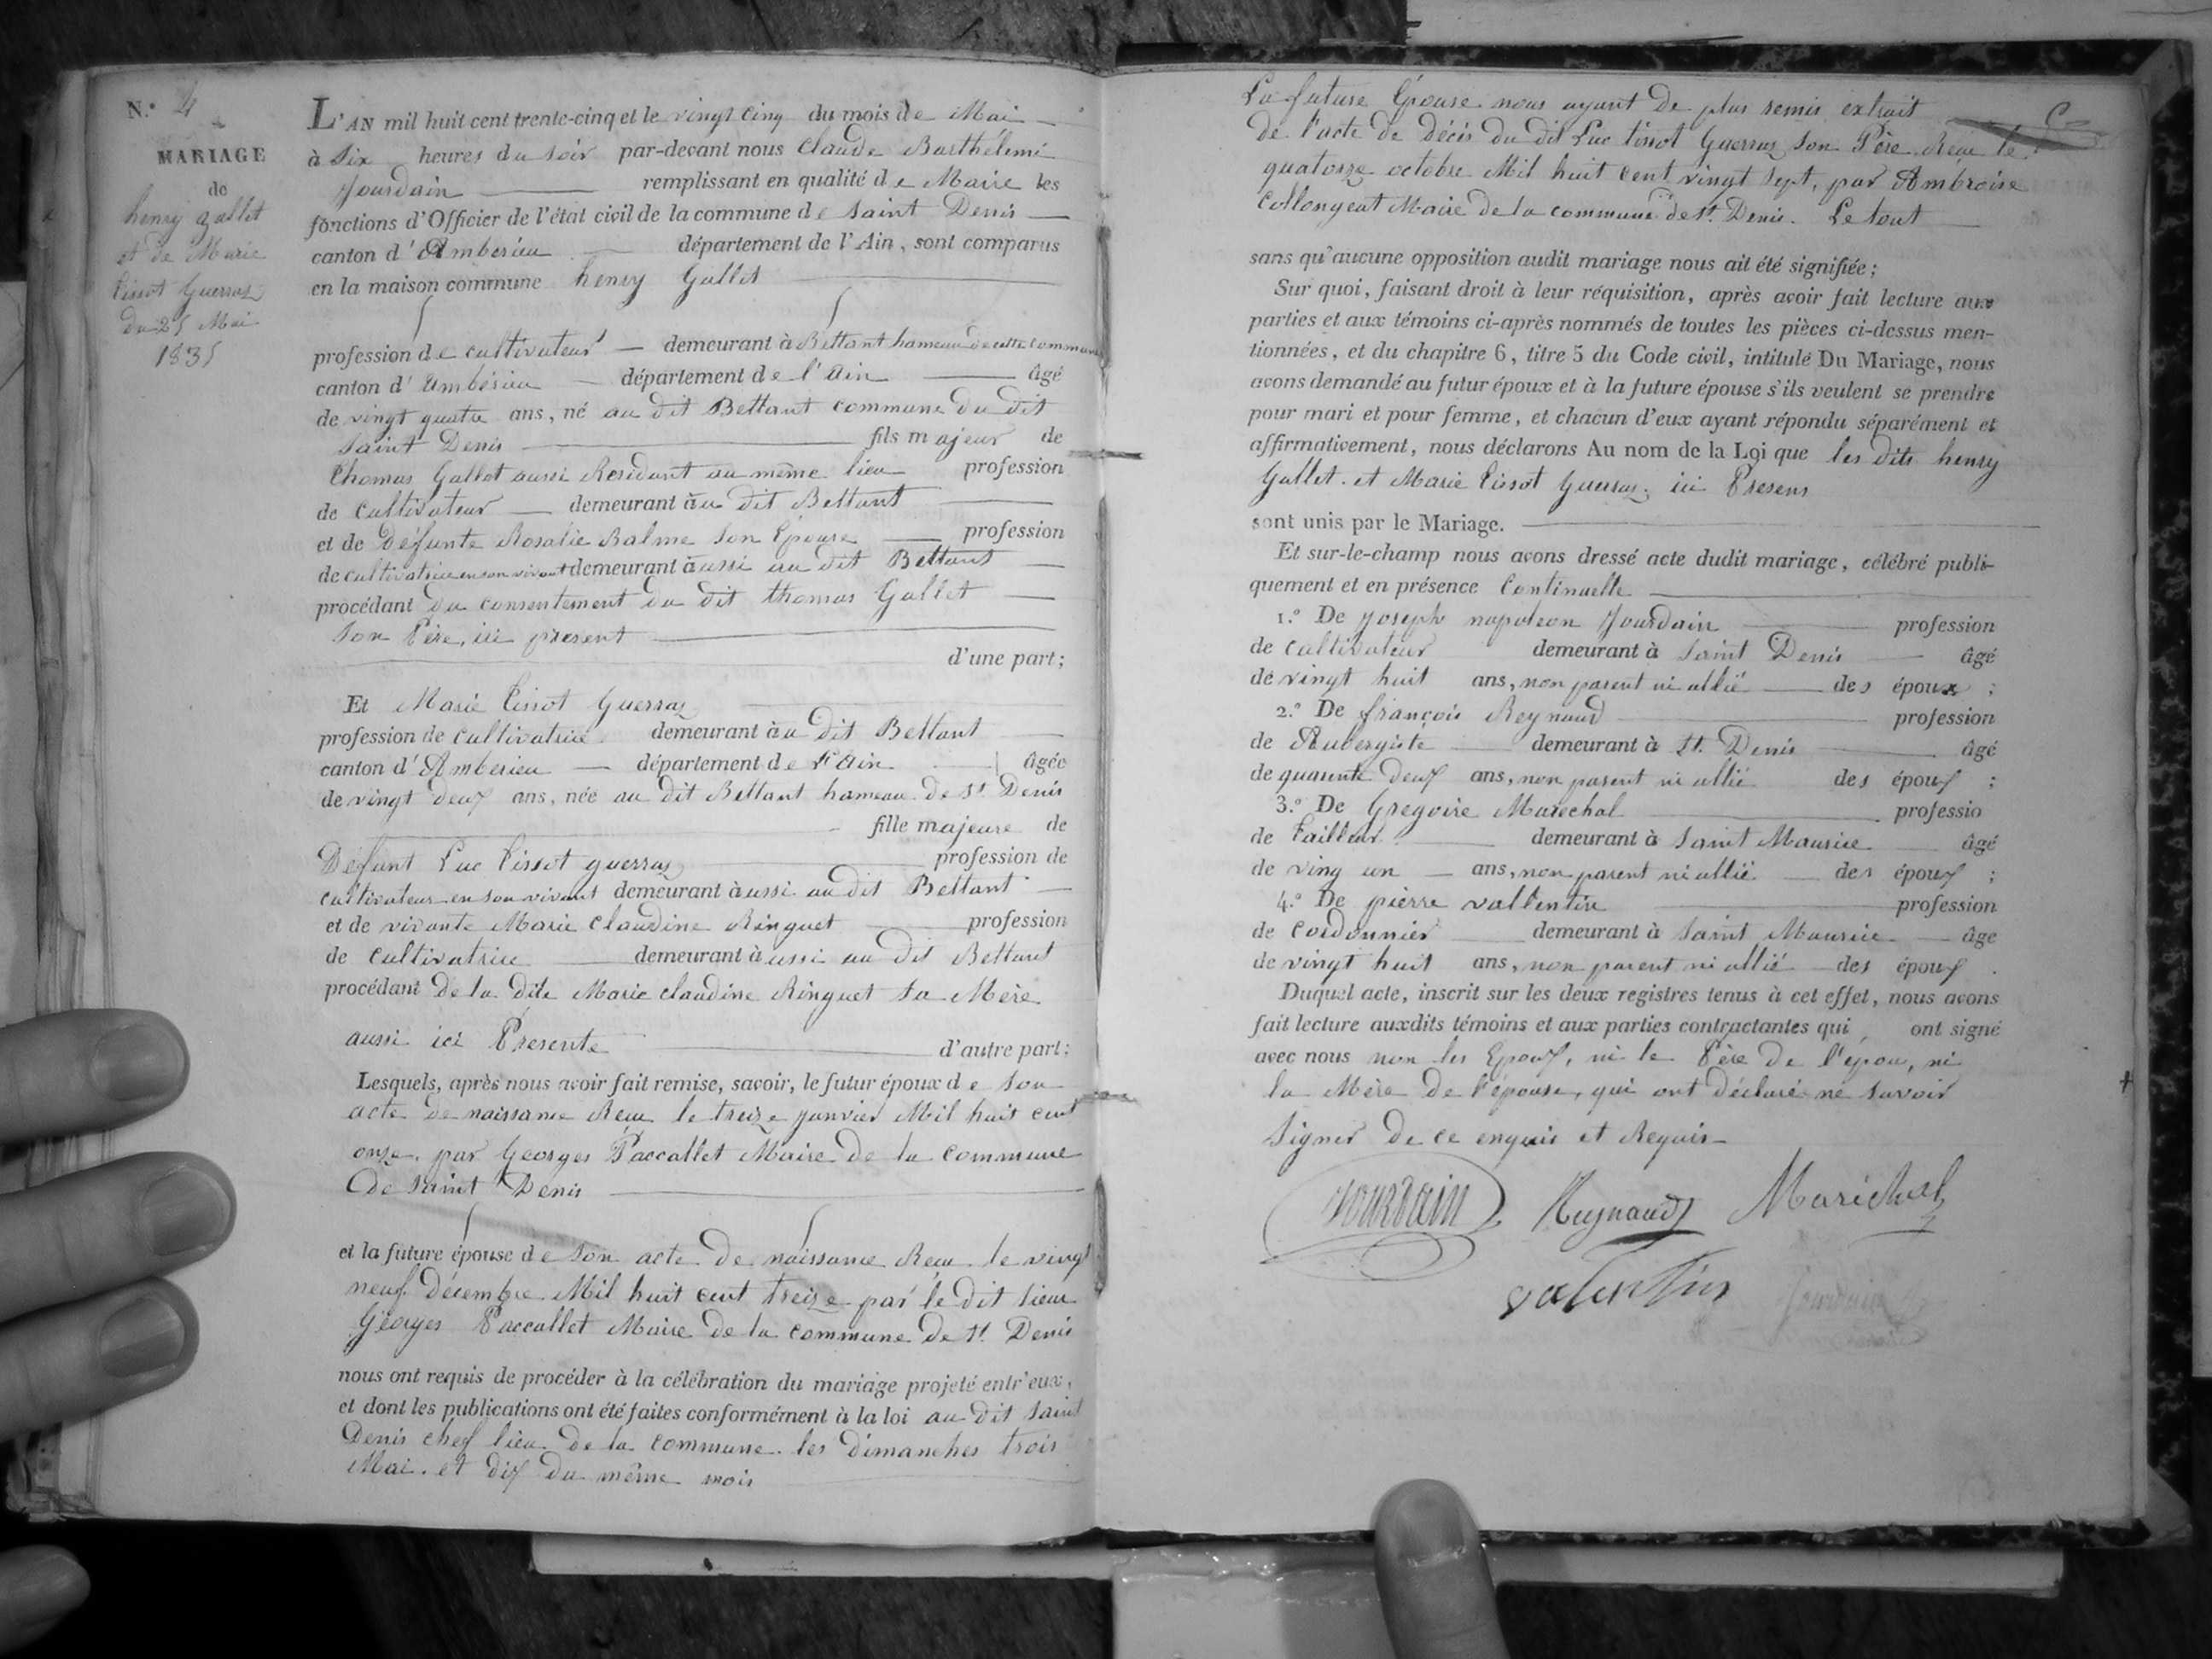 N.° 4
MARIAGE
de
henry gallet
et de Marie
tissot Guerraz
du 25 Mai
1835
L'AN mil huit cent trente-cinq et le vingt cinq du mois de Mai
à Six heures du soir par-devant nous Claude Barthélemi
Jourdain remplissant en qualité de Maire les
fonctions d'Officier de l'état civil de la commune de Saint Denis
canton d'Ambérieu département de l'Ain, sont comparus
en la maison commune henry Gallet
profession de cultivateur demeurant à Bettant hameau de cette commune
canton d'ambérieu département de l'ain âgé
de vingt quatre ans, né au dit Bettant commune du dit
Saint Denis fils majeur de
thomas Gallet aussi Residant au même lieu profession
de Cultivateur demeurant au dit Bettant
et de Défunte Rosalie Balme son Epouse profession
de cultivatrice en son vivant demeurant aussi au dit Bettant
procédant du consentement du dit thomas Gallet
son Père, ici présent
d'une part;
Et Marie tissot Guerraz
profession de Cultivatrice demeurant au dit Bettant
canton d'Amberieu département de l'ain âgée
de vingt deux ans, née au dit Bettant hameau de St Denis
fille majeure de
Défunt Luc tissot guerraz profession de
cultivateur en son vivant demeurant aussi au dit Bettant
et de vivante Marie Claudine Ringuet profession
de cultivatrice demeurant aussi au dit Bettant
procédant de la dite Marie claudine Ringuet sa Mère
aussi ici Présente d'autre part:
Lesquels, après nous avoir fait remise, savoir, le futur époux de son
acte de naissance Reçu le treize janvier Mil huit cent
onze, par Georges Paccallet Maire de la commune
de Saint Denis
et la future épouse de son acte de naissance Reçu le vingt
neuf Décembre Mil huit cent treize par le dit sieur
Georges Paccallet Maire de la commune de St Denis
nous ont requis de procéder à la célébration du mariage projeté entr'eux,
et dont les publications ont été faites conformément à la loi au dit Saint
Denis chef lieu de la commune les dimanches trois
Mai et dix du même mois
La future Epouse nous ayant de plus remis extrait
de l'acte de décès du dit Luc tissot Guerraz son Père Reçu le
quatorze octobre Mil huit cent vingt sept, par Ambroise
Collongeat Maire de la commune de St. Denis. Le tout
sans qu'aucune opposition audit mariage nous ait été signifiée;
Sur quoi, faisant droit à leur réquisition, après avoir fait lecture aux
parties et aux témoins ci-après nommés de toutes les pièces ci-dessus men-
tionnées, et du chapitre 6, titre 5 du Code civil, intitulé Du Mariage, nous
avons demandé au futur époux et à la future épouse s'ils veulent se prendre
pour mari et pour femme, et chacun d'eux ayant répondu séparément et
affirmativement, nous déclarons Au nom de la Loi que les dits henry
Gallet et Marie tissot Guerraz, ici Présens
sont unis par le Mariage.
Et sur-le-champ nous avons dressé acte dudit mariage, célébré publi-
quement et en présence Continuelle
1.° De Joseph napoleon Jourdain profession
de cultivateur demeurant à Saint Denis âgé
de vingt huit ans, non parent ni allié des époux ;
2.° De françois Reynaud profession
de Aubergiste demeurant à St. Denis âgé
de quarante deux ans, non parent ni allié des époux ;
3.° De Gregoire Marechal professio
de tailleur demeurant à Saint Maurice âgé
de ving un ans, non parent ni allié des époux ;
4.° De pierre vallentin profession
de Cordonnier demeurant à Saint Maurice âgé
de vingt huit ans, non parent ni allié des époux .
Duquel acte, inscrit sur les deux registres tenus à cet effet, nous avons
fait lecture auxdits témoins et aux parties contractantes qui ont signé
avec nous non les Epoux, ni le Père de l'épou, ni
la Mère de l'épouse, qui ont déclaré ne savoir
Signer de ce enquis et Requis
Jourdain Reynaud Maréchal
valentin Jourdain